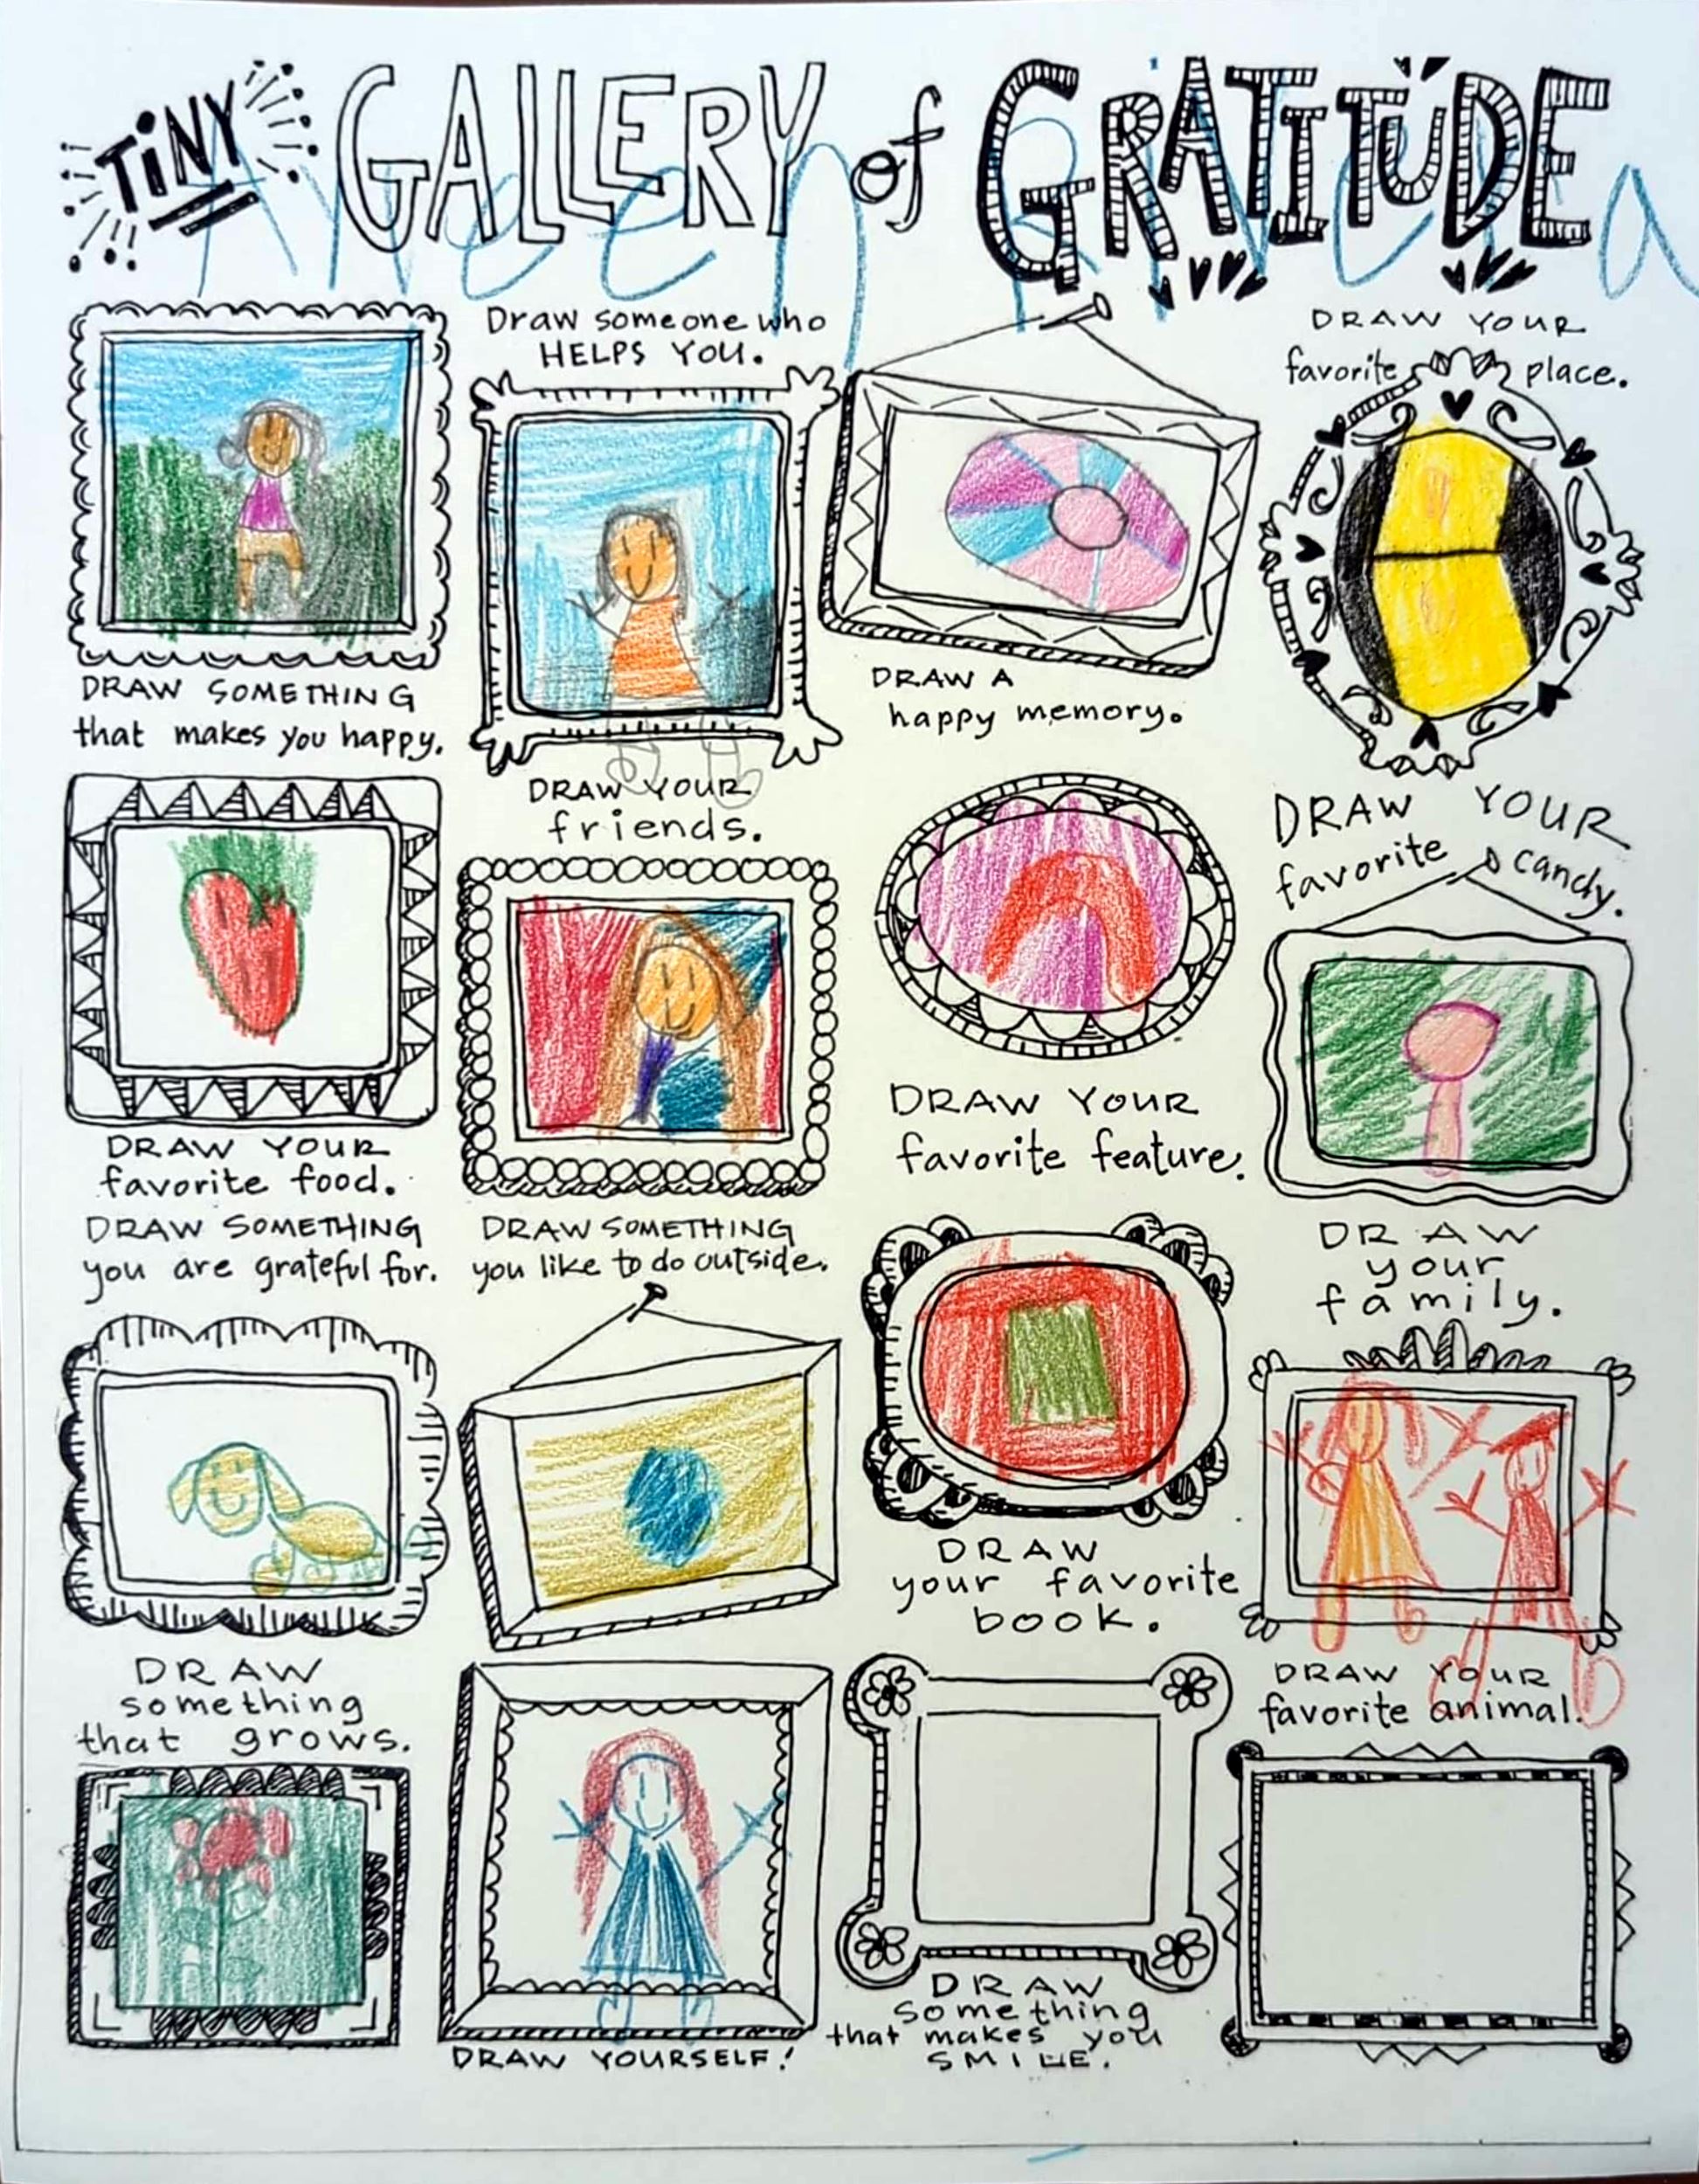 TiNY GALLERY of GRATITUDE
Draw someone who
HELPS YOU.
DRAW YOUR
favorite place.
DRAW SOMETHING
that makes you happy.
DRAW A
happy memory.
DRAW YOUR
friends.
DRAW YOUR
favorite candy.
DRAW YOUR
favorite food.
DRAW YOUR
favorite feature.
DRAW SOMETHING
you are grateful for.
DRAW SOMETHING
you like to do outside.
DRAW
your
family.
DRAW
your favorite
book.
DRAW
something
that grows.
DRAW YOUR
favorite animal.
DRAW YOURSELF!
DRAW
something
that makes you
SMILE.